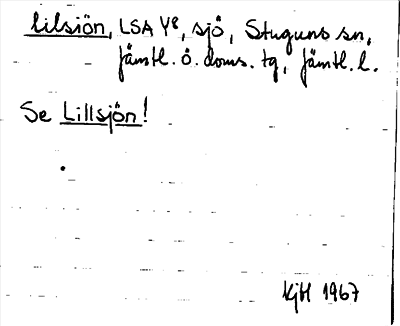 lilsiön, LSA Y8, sjö, Stuguns sn,
Jämtl. ö. doms. tg, Jämtl. l.
Se Lillsjön!
KjH 1967